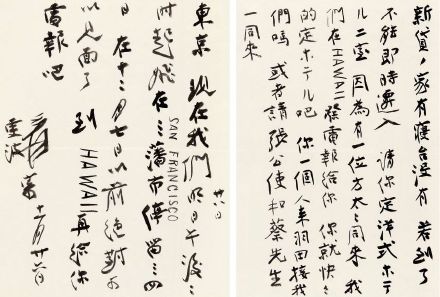 新貸ノ家有寢台沒有 若到了
不能即時遷入 請你定洋式ホテ
ル二室 因為有一位方太々同來 我
們在HAWAII發電報給你 你就快々
的定ホテル吧 你一個人來羽田接我
們嗎 或者請張公使和蔡先生
一同來
廿八
東京 現在我們明日午後三
SAN FRANCISCO
時起飛 在三藩市停留三四
日 在十二月七日以前絕對可
以見面了 到HAWAII再給你
電報吧
爰 十一月廿八日